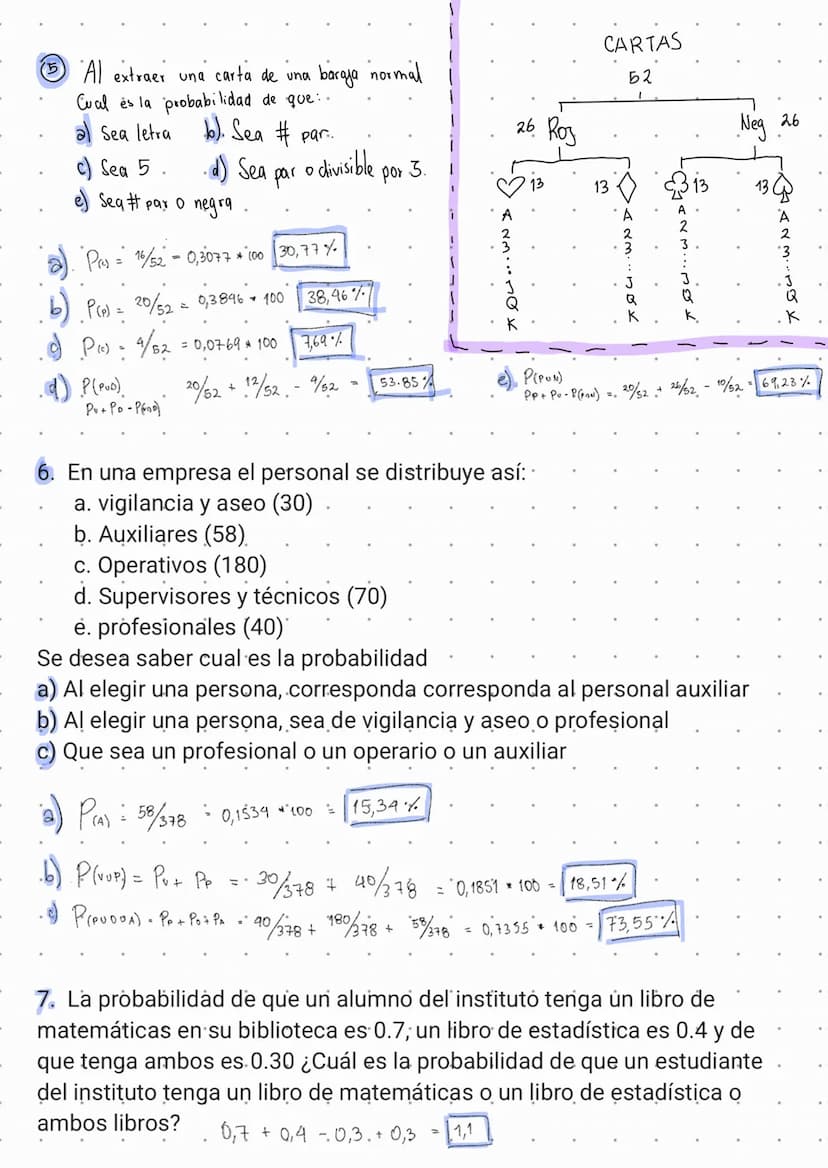 5 Al extraer una carta de una baraja normal
Cual es la probabilidad de que:
a) Sea letra b). Sea # par.
c) Sea 5 . d) Sea par o divisible por 3.
e) Sea # par o negra.
CARTAS
52
26 Roj Neg 26
♡ 13 13 ♢ ♧ 13 13 ♤
A A A A
2 2 2 2
3 3 3 3
: : : :
J J J J
Q Q Q Q
K K K K
a). P(L) = 16/52 = 0,3077 * 100 30,77 %
b) P(P) = 20/52 = 0,3846 * 100 38,46 %
c) P(c) = 4/52 = 0,0769 * 100 7,69 %
d) P(PUD). 20/52 + 12/52 - 4/52 = 53.85 %
Pp + PD - P(PnD)
e). P(PUN)
Pp + PN - P(PnN) = 20/52 + 26/52 - 10/52 = 69,23 %
6. En una empresa el personal se distribuye así:
a. vigilancia y aseo (30)
b. Auxiliares (58)
c. Operativos (180)
d. Supervisores y técnicos (70)
e. profesionales (40)
Se desea saber cual es la probabilidad
a) Al elegir una persona, corresponda corresponda al personal auxiliar
b) Al elegir una persona, sea de vigilancia y aseo o profesional
c) Que sea un profesional o un operario o un auxiliar
a) P(A) = 58/378 = 0,1534 * 100 = 15,34 %
b) P(VUP) = Pv + Pp = 30/378 + 40/378 = 0,1851 * 100 = 18,51 %
c) P(PUOUA) = Pp + Po + PA = 40/378 + 180/378 + 58/378 = 0,7355 * 100 = 73,55 %
7. La probabilidad de que un alumno del instituto tenga un libro de
matemáticas en su biblioteca es 0.7, un libro de estadística es 0.4 y de
que tenga ambos es 0.30 ¿Cuál es la probabilidad de que un estudiante
del instituto tenga un libro de matemáticas o un libro de estadística o
ambos libros? 0,7 + 0,4 - 0,3 + 0,3 = 1,1